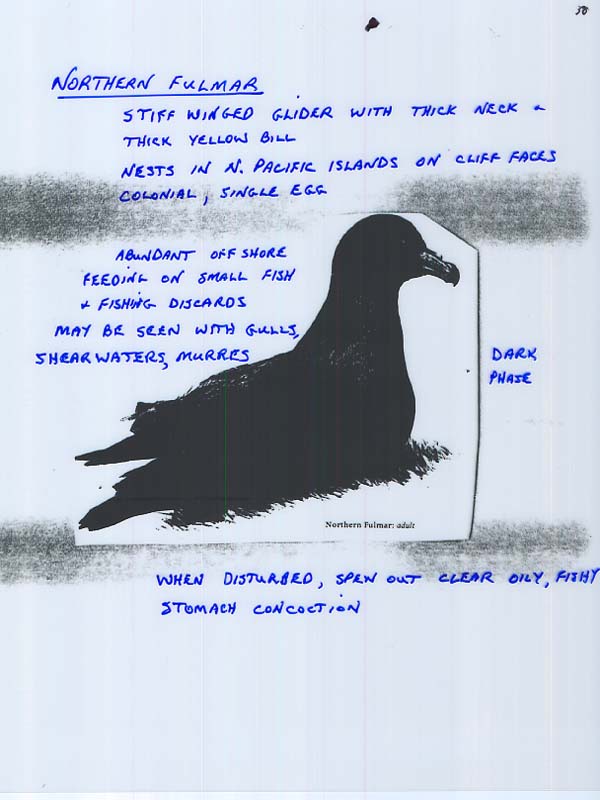 38
NORTHERN FULMAR
STIFF WINGED GLIDER WITH THICK NECK &
THICK YELLOW BILL
NESTS IN N. PACIFIC ISLANDS ON CLIFF FACES
COLONIAL, SINGLE EGG
ABUNDANT OFF SHORE
FEEDING ON SMALL FISH
& FISHING DISCARDS
MAY BE SEEN WITH GULLS,
SHEARWATERS, MURRES
DARK
PHASE
Northern Fulmar: adult
WHEN DISTURBED, SPEW OUT CLEAR OILY, FISHY
STOMACH CONCOCTION